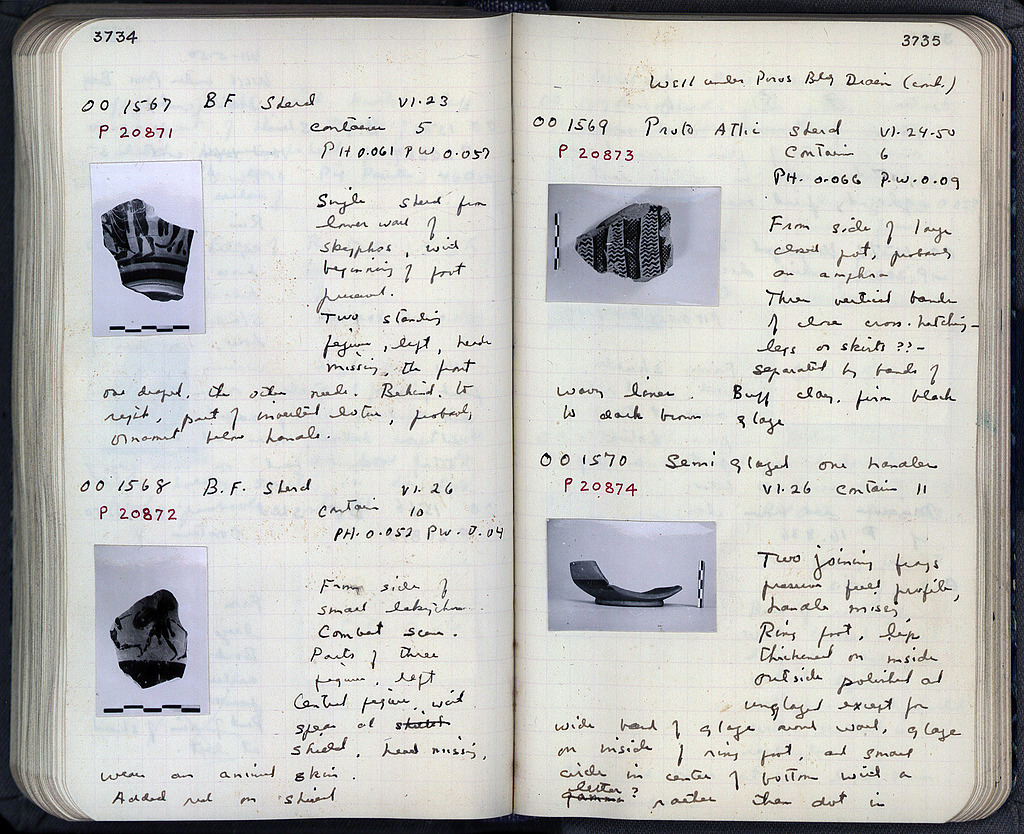 3734
OO 1567 B F Sherd VI.23
P 20871 Container 5
PH 0.061 PW 0.057
Single sherd from
lower wall of
skyphos, with
beginning of foot
preserved.
Two standing
figures, left, heads
missing, the front
one draped, the other nude. Behind, to
right, part of inverted lotus, probably
ornament below handle.
OO 1568 B.F. Sherd VI.26
P 20872 Contain 10
PH. 0.052 PW. 0.04
From side of
small lekythos.
Combat scene.
Parts of three
figures, left
Central figure with
spear and shield
shield, head missing,
wears an animal skin.
Added red on shield
3735
Well under Poros Bldg Drain (cont.)
OO 1569 Proto Attic sherd VI.24.50
P 20873 Contain 6
PH. 0.066 P.W. 0.09
From side of large
closed pot, probably
an amphora
Three vertical bands
of close cross-hatching-
legs or skirts ??-
separated by bands of
wavy lines. Buff clay, firm black
to dark brown glaze
OO 1570 Semi glazed one handler
P 20874 VI.26 Contain 11
Two joining frags
preserve full profile,
handle missing
Ring foot, lip
thickened on inside
outside polished and
unglazed except for
wide band of glaze around wall, glaze
on inside of ring foot, and small
circle in center of bottom with a
letter? gamma rather than dot in